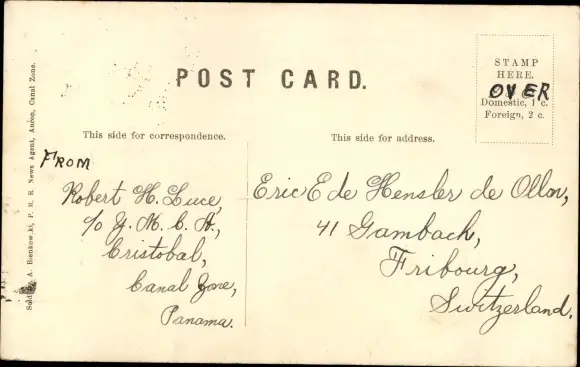 POST CARD.
STAMP
HERE.
OVER
Domestic, 1 c.
Foreign, 2 c.
This side for correspondence.
This side for address.
FROM
Robert H. Luce,
c/o Y. M. C. A.,
Cristobal,
Canal Zone,
Panama.
Eric E de Hensler de Ollon,
41 Gambach,
Fribourg,
Switzerland.
Sold by A. Bienkowski, P. R. R. News Agent, Ancon, Canal Zone.